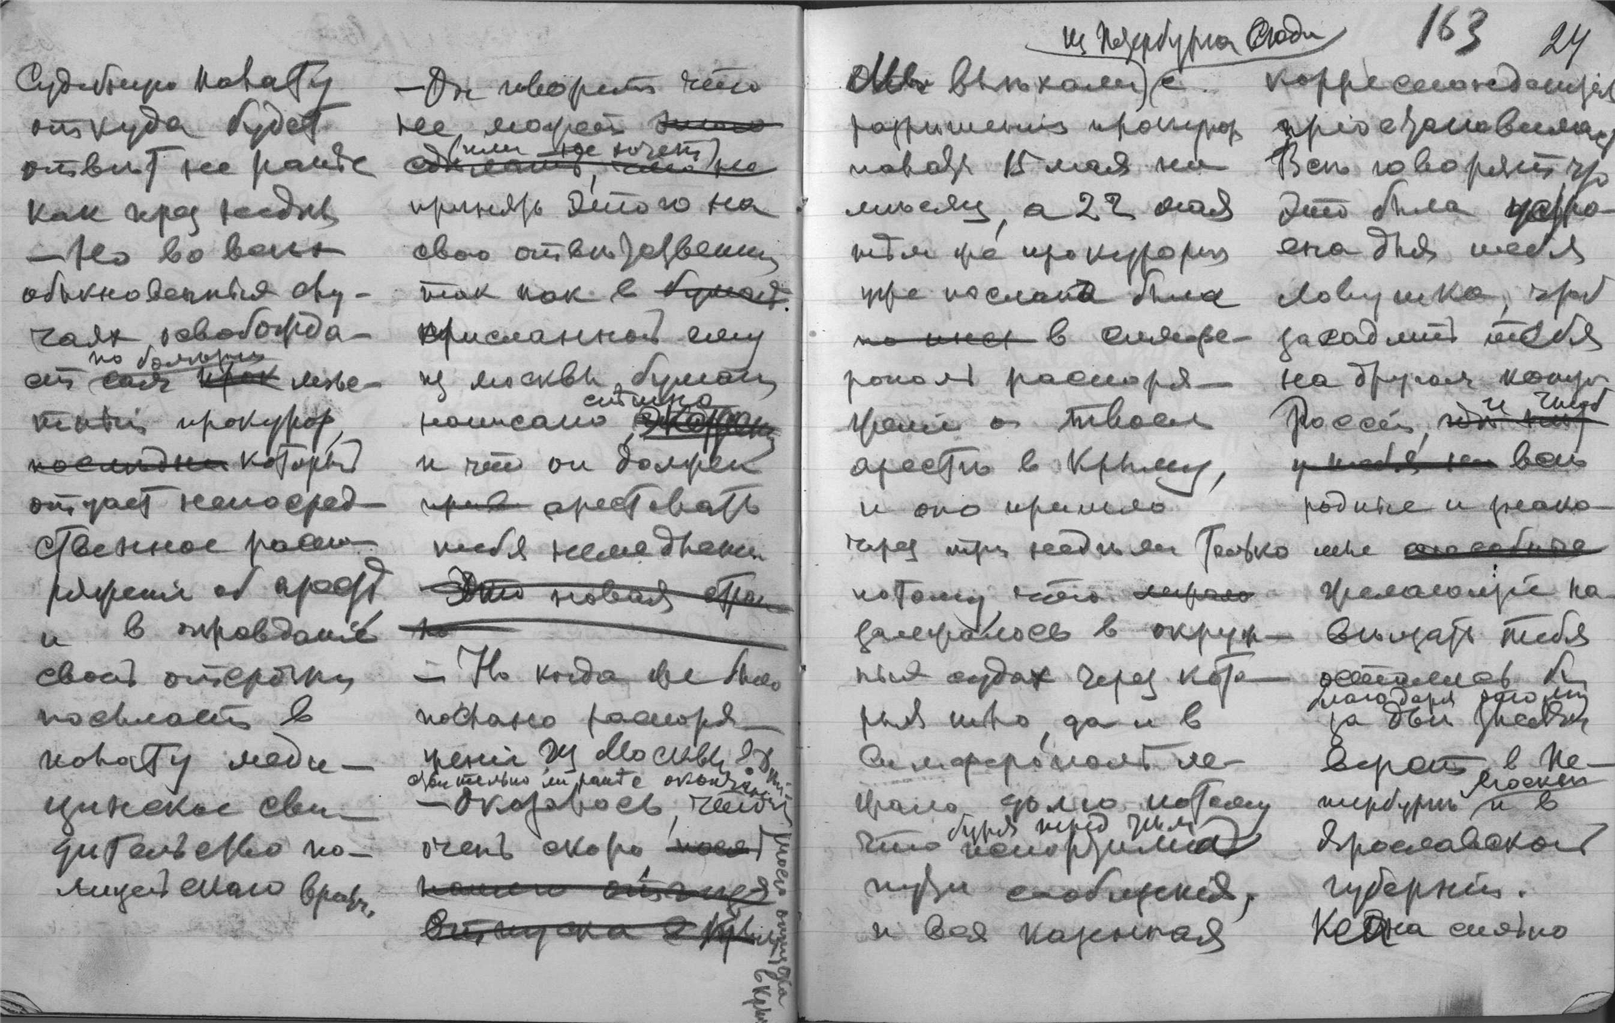 Судебную палату
откуда будет
ответ не ранее
как чрез неделю
— Но во всех
обыкновенных слу-
чаях освобожда-
ет по болезни сам мест-
ный прокурор,
который
отдаст непосред-
ственное распо-
ряжение об аресте
и в оправдание
своей отсрочки
посылает в
палату меди-
цинское сви-
детельство по-
лицейского врача.
— Он говорит что
не может
(или не хочет)
принять этого на
свою ответственность
так как в
присланной ему
из Москвы бумаге
написано
и что он должен
арестовать
тебя немедленно
Это новая
— Но когда же было
послано распоря-
жение из Москвы?
действительно ли ранее
— Оказалось, что
очень скоро
моего отпуска
в Крым
из Петербурга сюда
163 24
Мы выехали с
разрешения прокурора
палаты 15 мая на
месяц, а 22 мая
тем же прокурором
уже послано было
в Симфе-
рополь распоря-
жение о твоем
аресте в Крыму,
и оно пришло
через три недели только
потому, что
залежалось в окруж-
ных судах через кото-
рыя шло, да и в
Симферополь ле-
жало долго потому
что буря перед тем
испортила
пути сообщения,
и вся казенная
корреспонденция
приостановилась
Все говорят что
это была устро-
ена для тебя
ловушка, чтоб
засадить тебя
на другом конце
России, и чтоб
все
родные и знако-
мые
желающие на-
вещать тебя
остались бы
благодаря этому
за две тысячи
верст в Пе-
тербурге Москве и в
Ярославской
губернии.